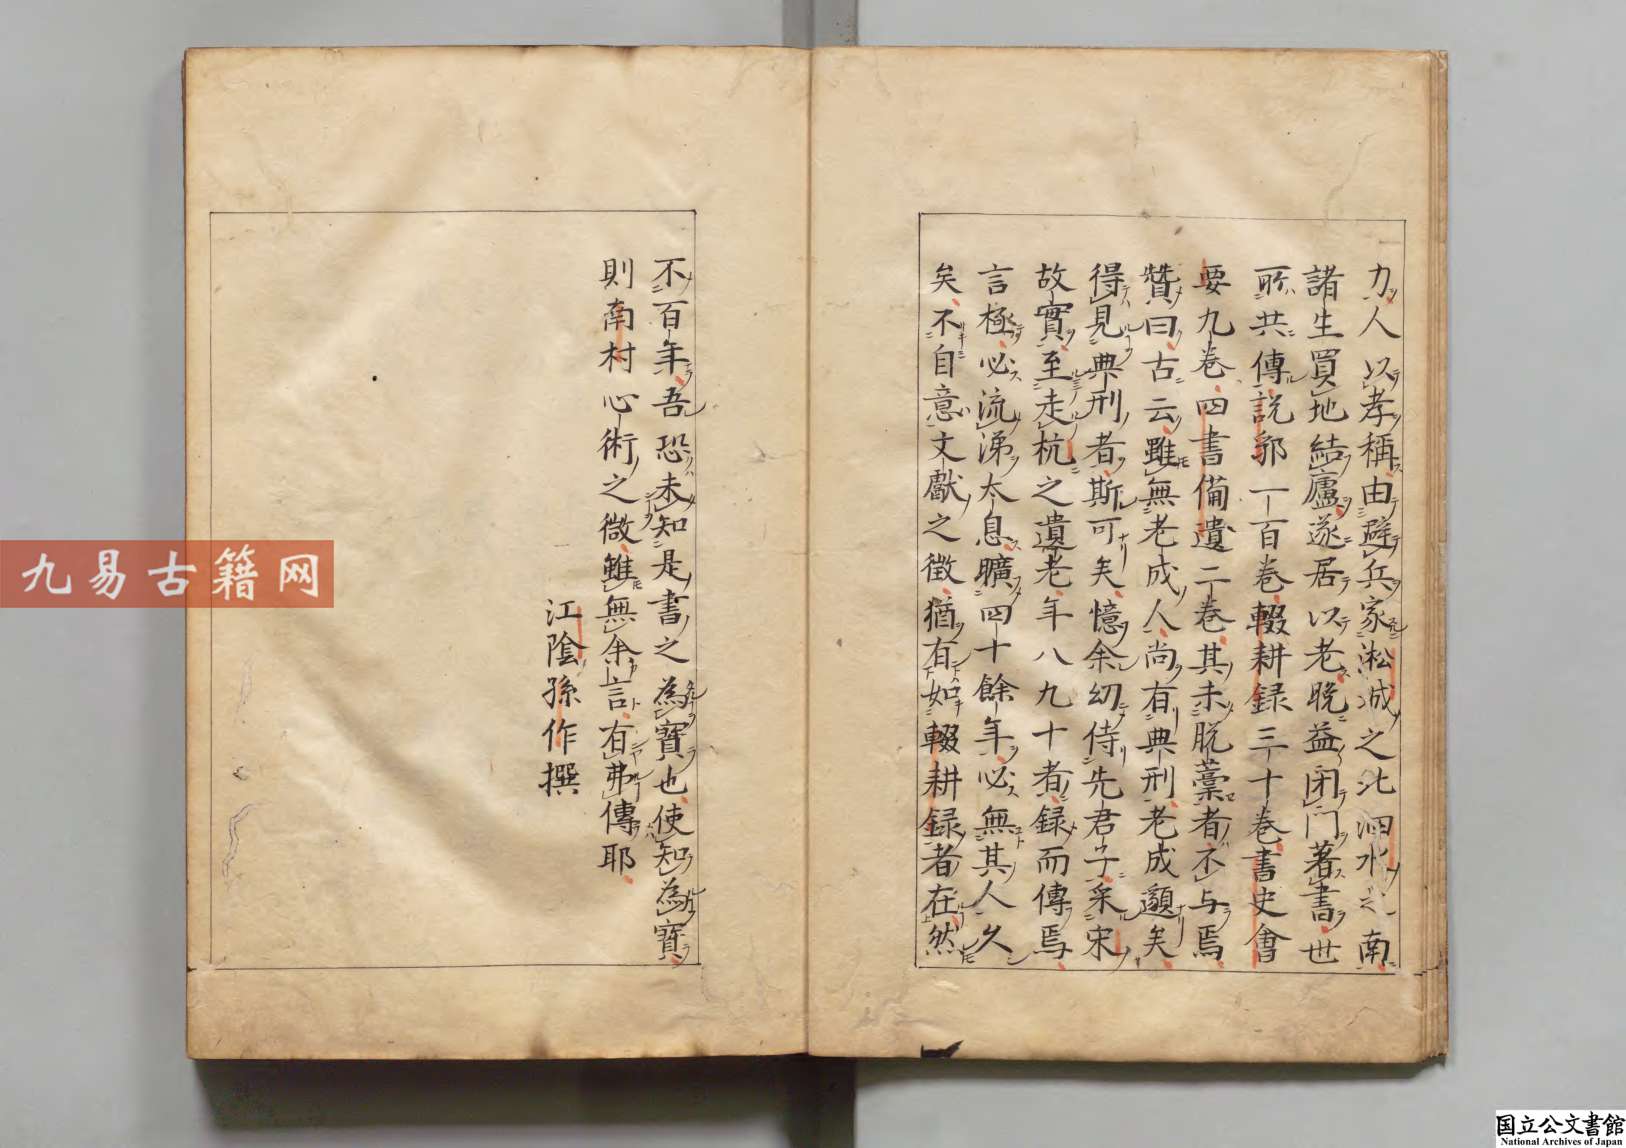 力人以孝稱由避兵家淞城之北泗水之南
諸生買地結廬遂居以老晚益閉門著書世
所共傳説郛一百卷輟耕録三十卷書史會
要九卷四書備遺二卷其未脱藁者不与焉
贊曰古云雖無老成人尚有典刑老成邈矣
得見典刑者斯可矣憶余幼侍先君子采宋
故實至走杭之遺老年八九十者録而傳焉
言極必流涕太息曠四十餘年必無其人久
矣不自意文獻之徵猶有如輟耕録者在然
不百年吾恐未知是書之為寳也使知為寳
則南村心術之微雖無余言有弗傳耶
江陰孫作撰
九易古籍网
国立公文書館
National Archives of Japan